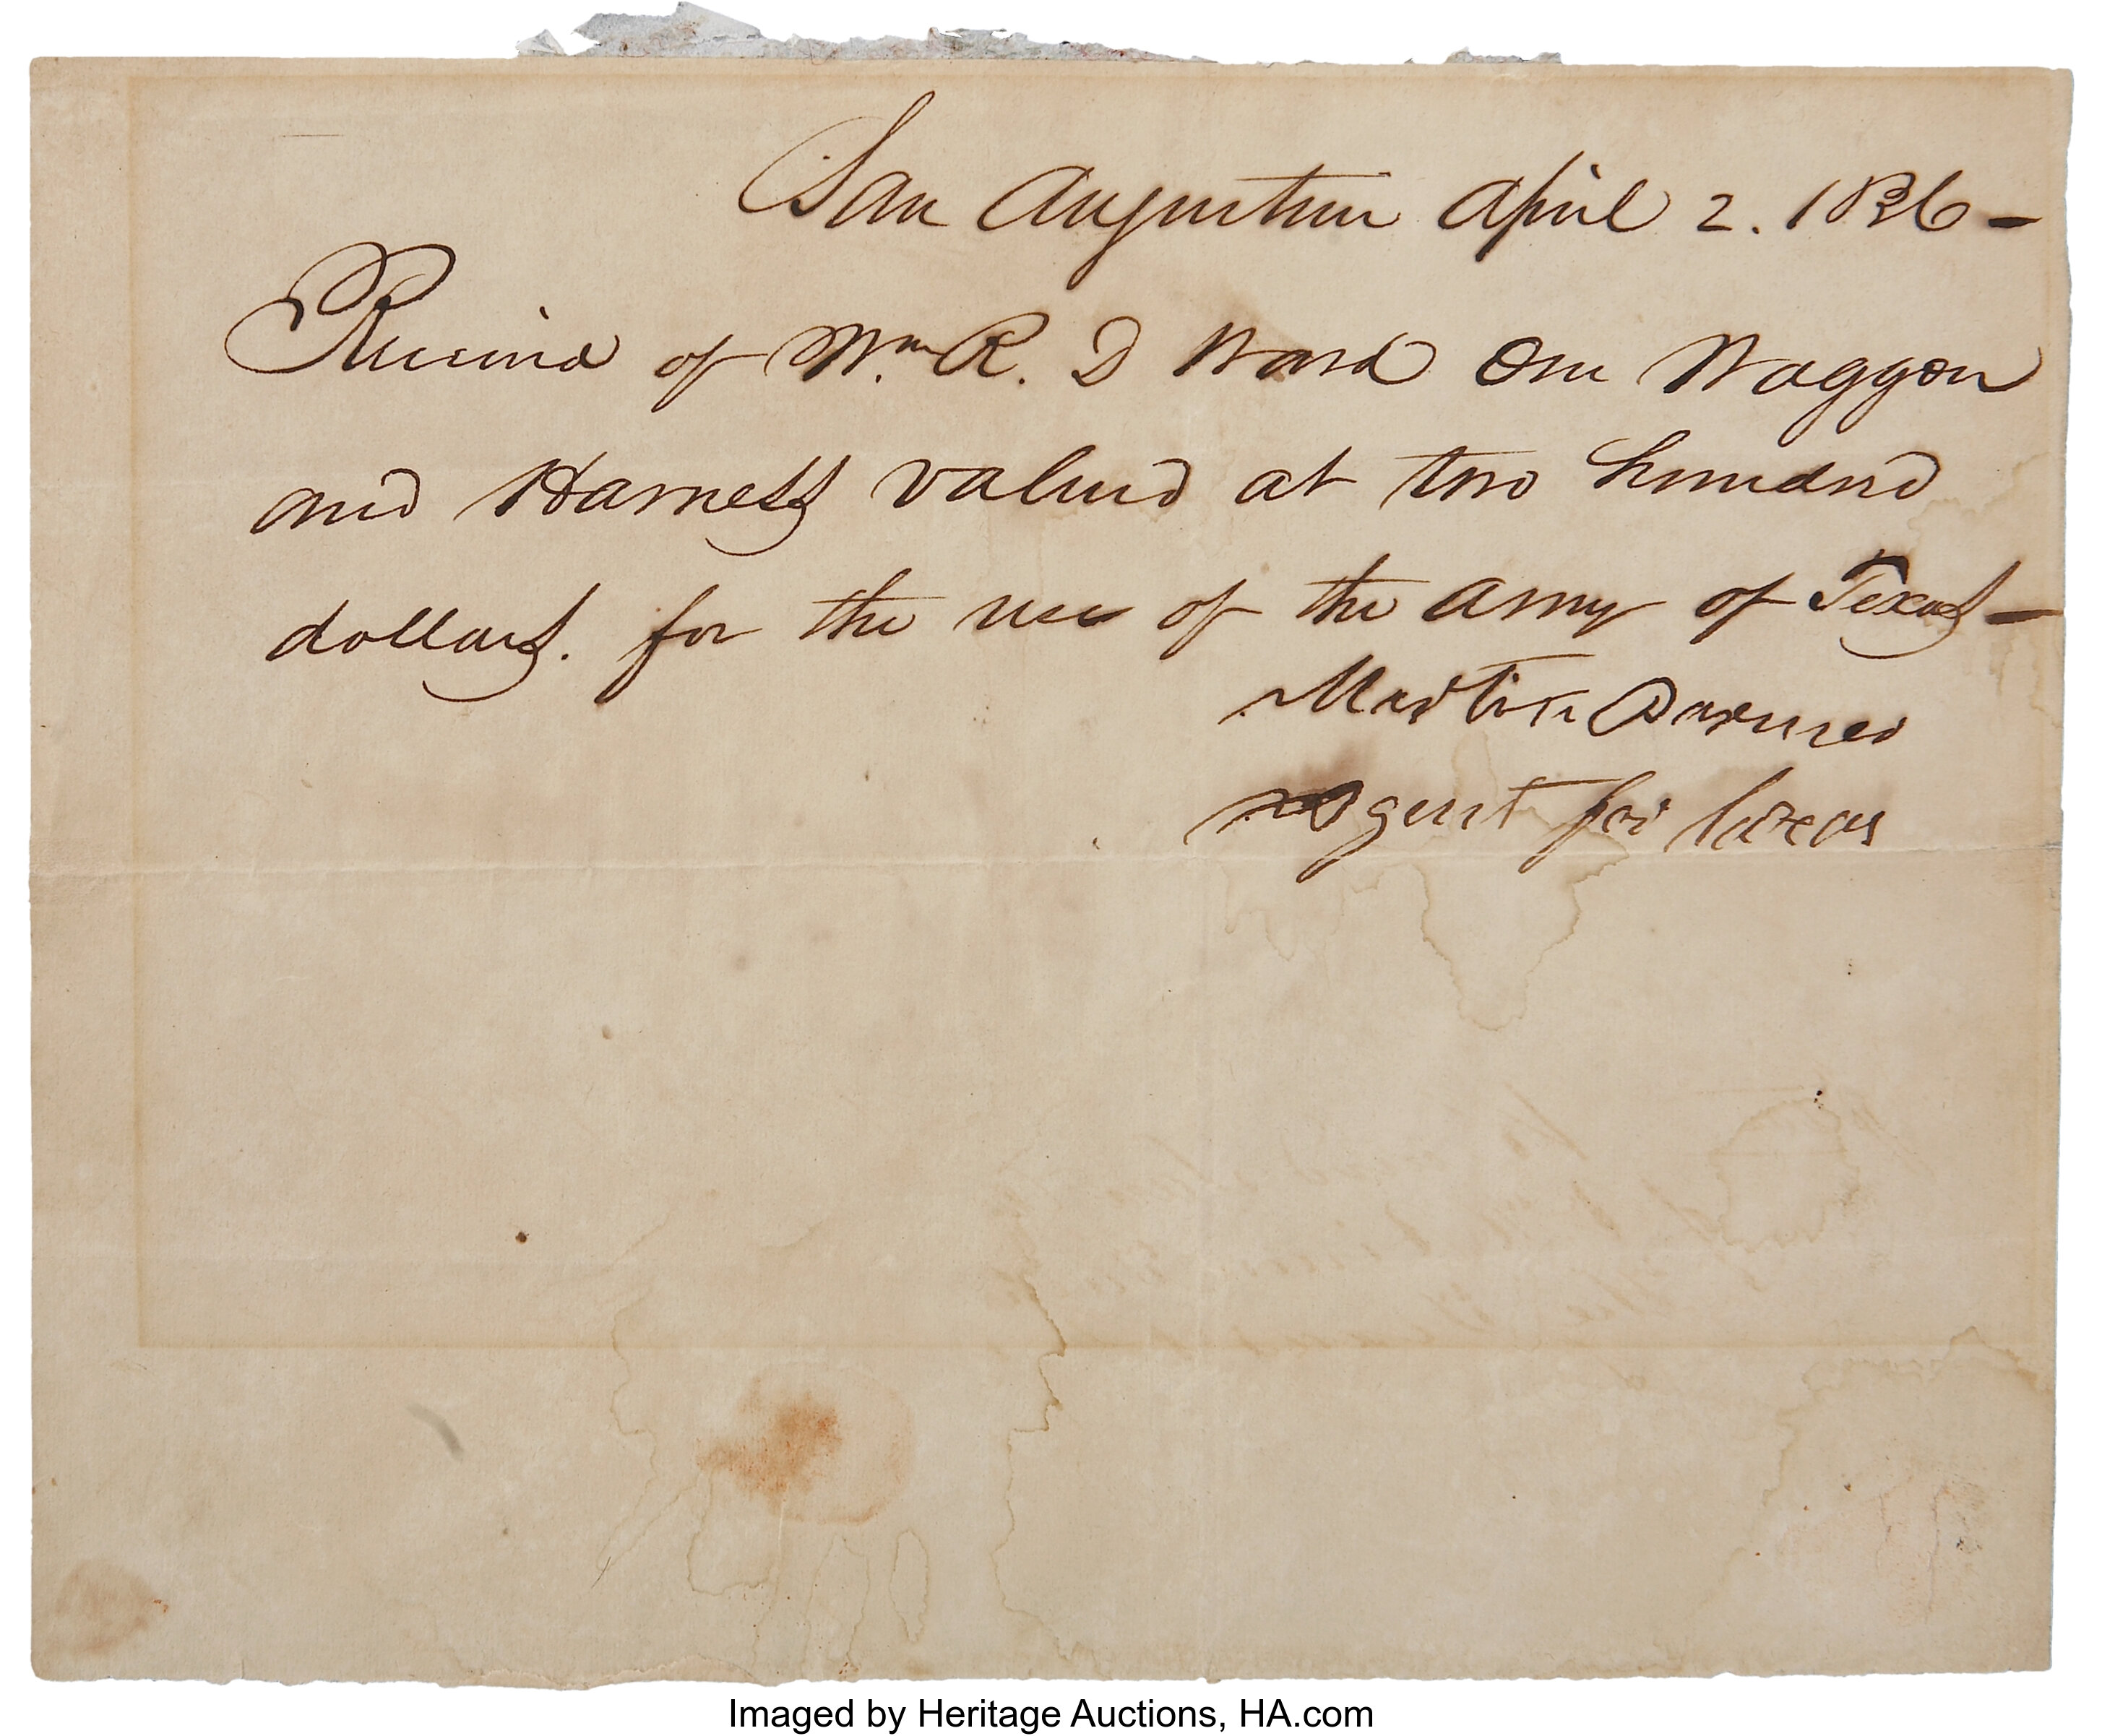 San Augustin April 2. 1836 -
Received of Wm. R. D Ward One Waggon
and Harness valued at two hundred
dollars. for the use of the army of Texas -
Martin Parmer
Agent for texas
Imaged by Heritage Auctions, HA.com